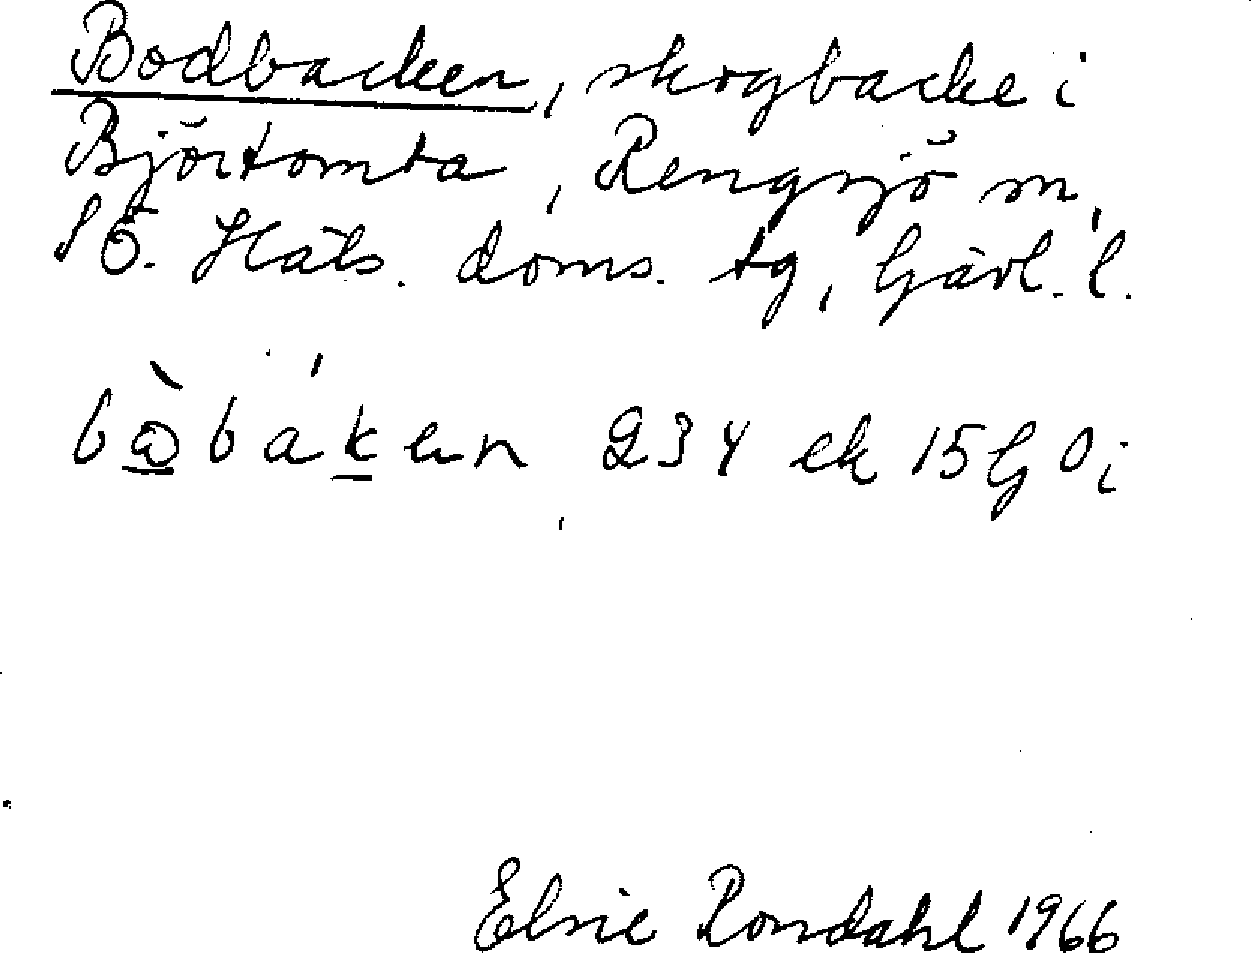 Bodbacken, skogbacke i
Björtomta, Rengsjö sn,
SÖ. Häls. doms. tg, Gävl. l.
234 ek 15G 0i
Elsie Rondahl 1966